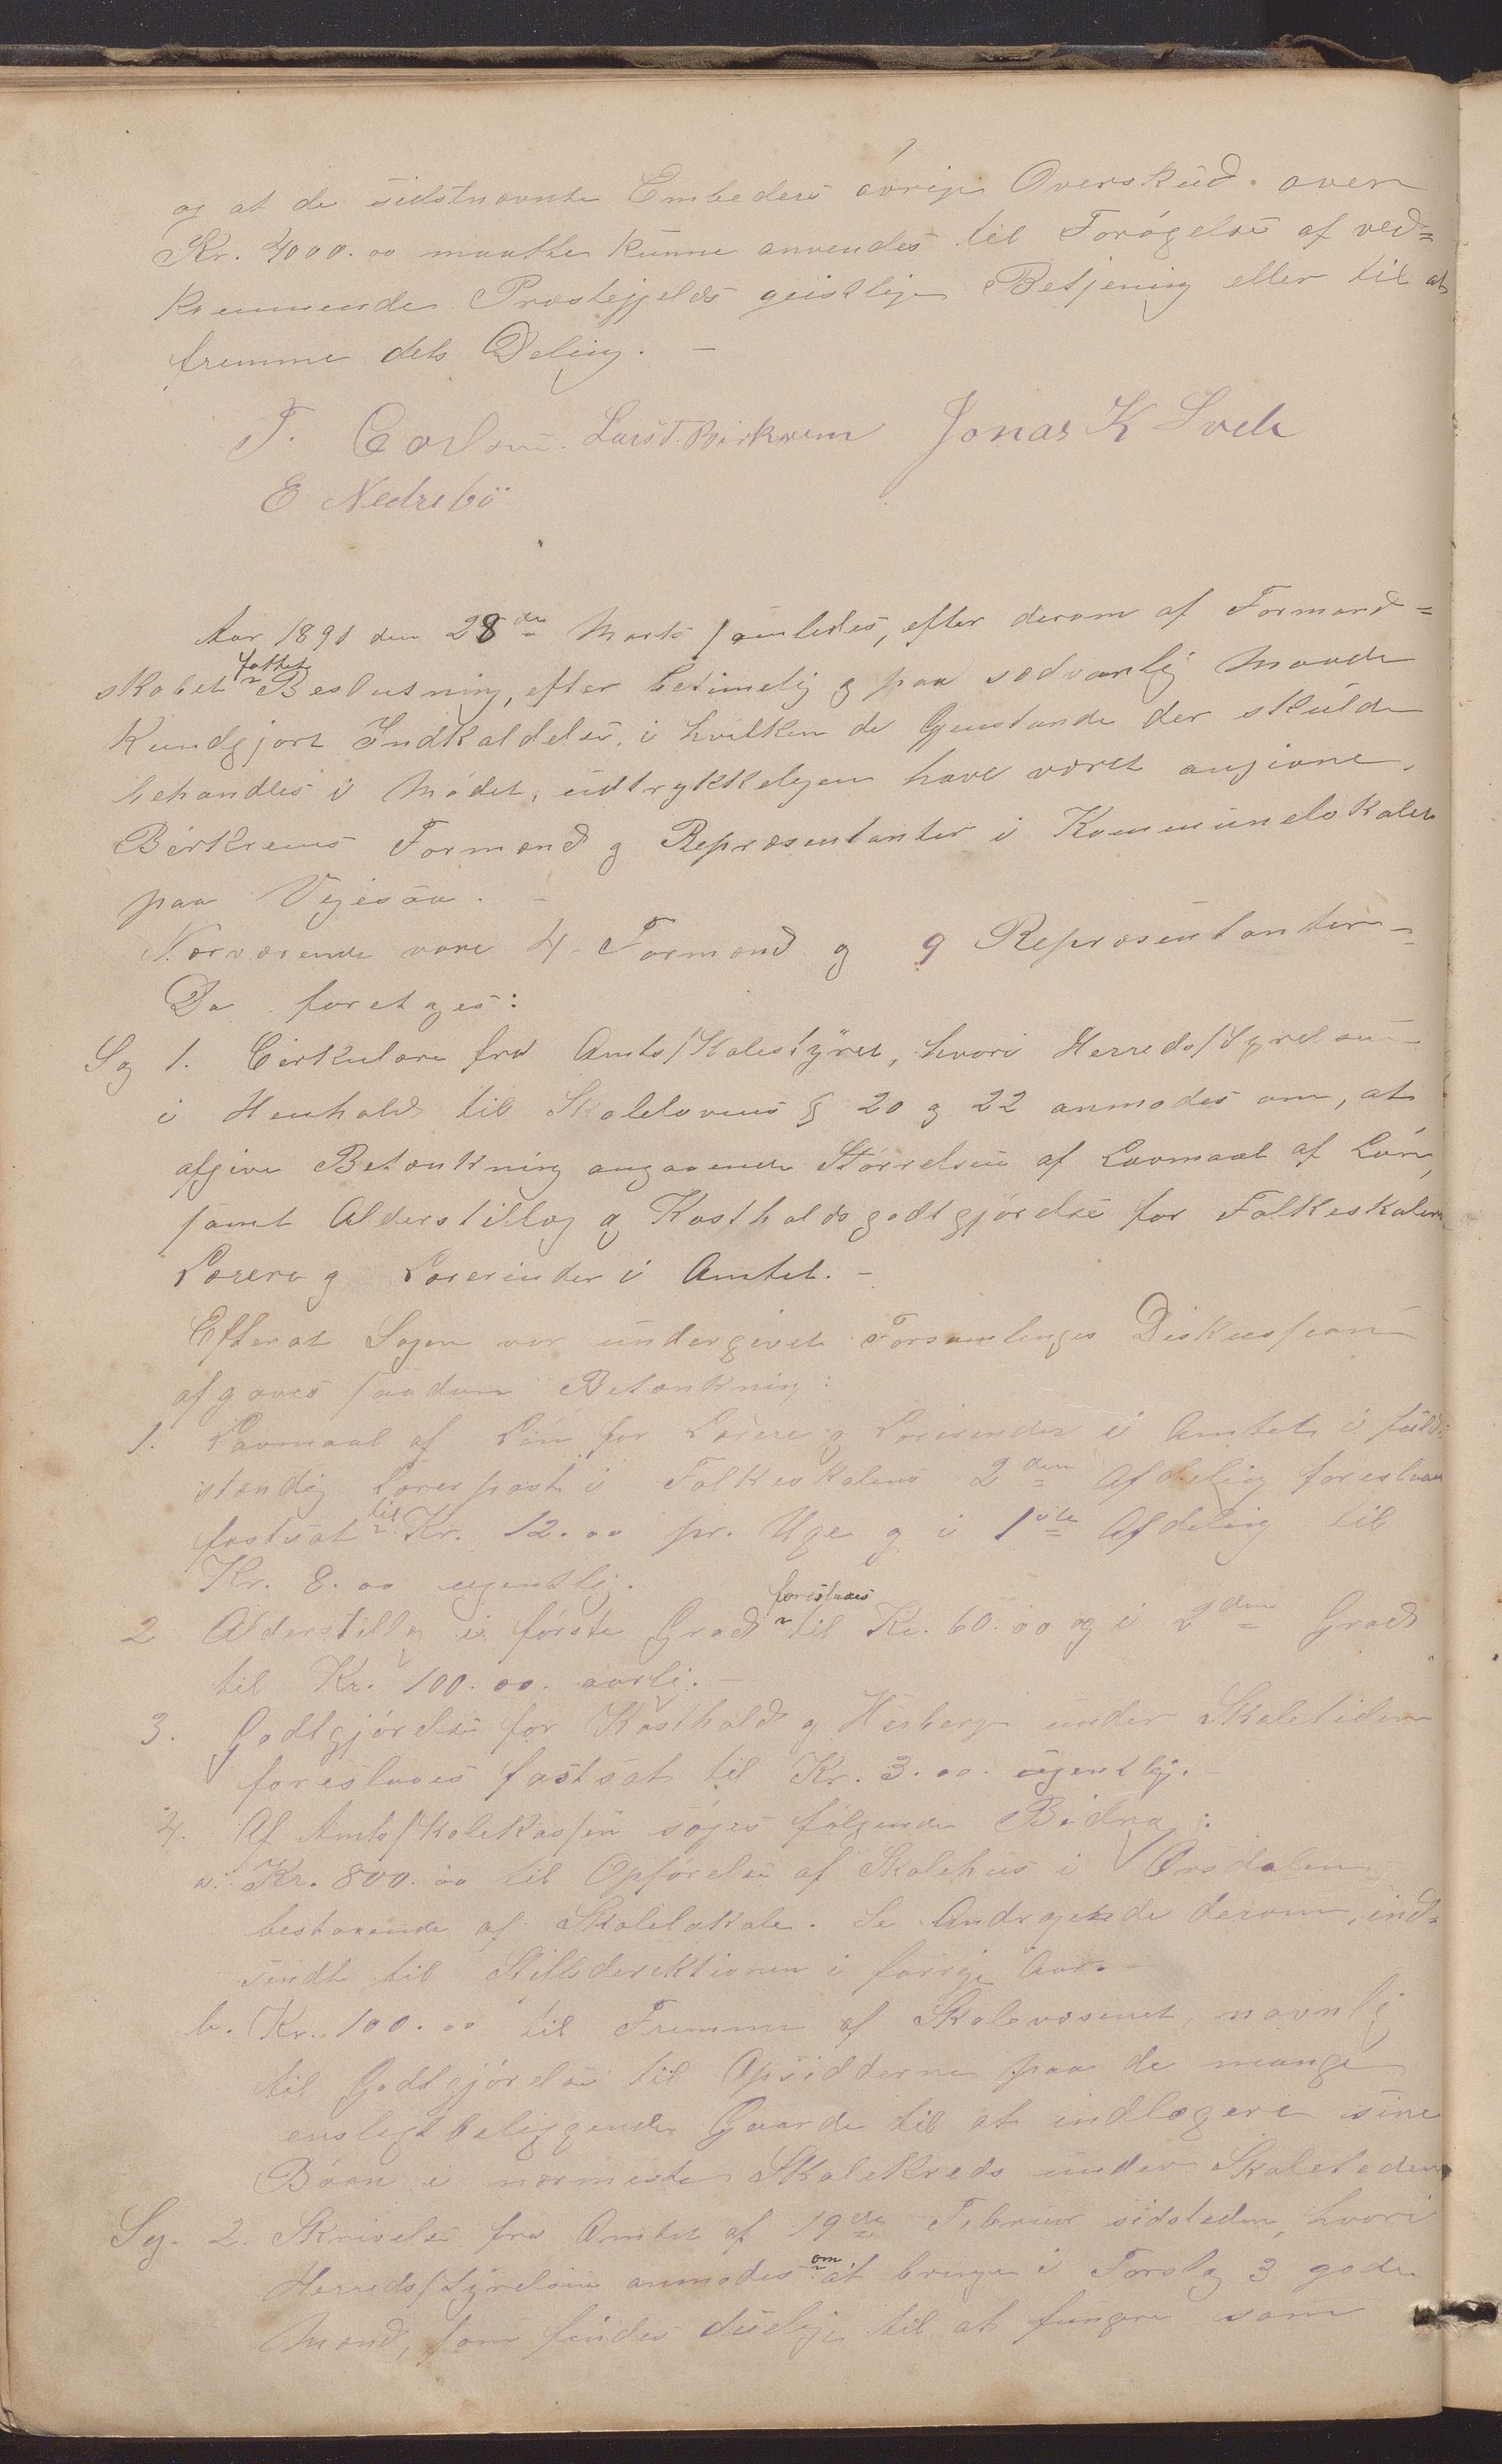 og at de sidstnævnte Embeders øvrige Overskud over
Kr. 4000.00 maatte kunne anvendes til Forøgelse af ved=
kommende Præstegjelds geistlige Betjening eller til at
fremme dets Deling. –
T. Lars T. Birkrem Jonas K
E Nedrebö
Aar 1891 den 28de Marts samledes, efter derom af Formand=
skabet fattet Beslutning, efter betimelig og paa sædvanlig Maade
kundgjort Indkaldelse, i hvilken de Gjenstande der skulde
behandles i Mødet, udtrykkeligen have været angivne,
Birkrems Formænd og Repræsentanter i Kommunelokalet
paa Vigesaa. –
Nærværende vare 4 Formænd og 9 Repræsentanter. –
Da foretoges:
Sag 1. Cirkulære fra Amtsskolestyret, hvori Herredsstyrelsen
i Henhold til Skolelovens § 20 og 22 anmodes om, at
afgive Betænkning angaaende Størrelsen af Lavmaal af Løn,
samt Alderstillæg og Kostholdsgodtgjørelse for Folkeskolens
Lærere og Lærerinder i Amtet. –
Efterat Sagen var undergivet Forsamlinges Diskussion
afgaves saadan Betænkning:
1. Lavmaal af Løn for Lærere og Lærerinder i Amtet i fuld=
stændig Lærerpost i Folkeskolens 2den Afdeling foreslaaes
fastsat til Kr. 12.00 pr. Uge og i 1ste Afdeling til
Kr. 8.00 ugentlig.
2 Alderstillæg i første Grad foreslaaes til Kr. 60.00 og i 2den Grad
til Kr. 100.00. aarli. –
3. Godtgjørelse for Kosthold og Herberge under Skoletiden
foreslaaes fastsat til Kr. 3.00. ugentlig. –
4. Af Amtsskolekassen søges følgende Bidrag:
a. Kr. 800.00 til Opførelse af Skolehus i Ørsdalen
bestaaende af Skolelokale. Se Andragende derom, ind=
sendt til Stiftsdirektionen i forrige Aar. –
b. Kr. 100.00 til Fremme af Skolevæsenet, navnlig
til Godtgjørelse til Opsidderne paa de mange
ensligtbeliggende Gaarde til at indlogere sine
Børn i nærmeste Skolekreds under Skoletiden
Sag. 2. Skrivelse fra Amtet af 19de Februar sidstleden, hvori
Herredsstyrelsen anmodes om at bringe i Forslag 3 gode
Mænd, som findes duelige til at fungere som